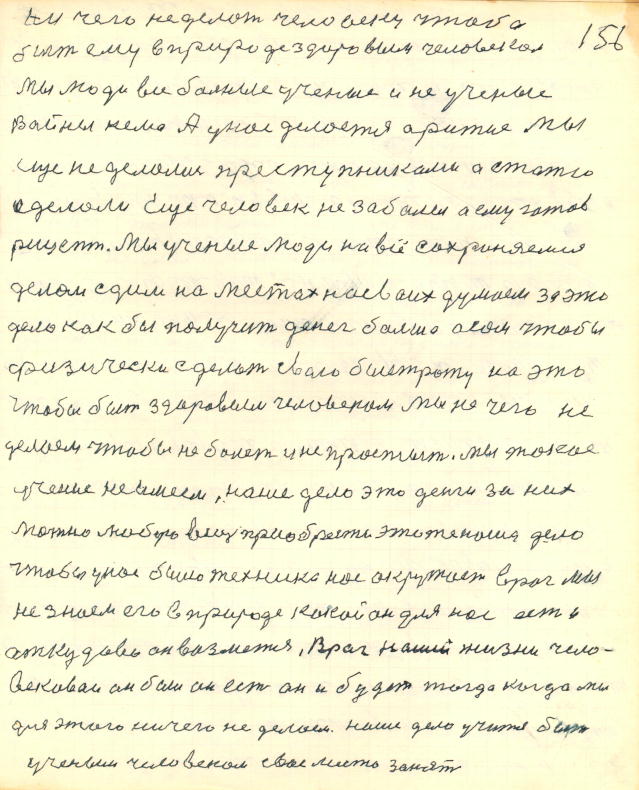 ни чего не делат человеку чтоба
быт ему в природе здоровым человеком 156
мы люди все болные ученые и не ученые
Войны нема А у нас делоется аритие мы
еще не делоли преступниками а статю
сделоли Еще человек не заболел а ему готов
рицепт. Мы ученые люди на все сохроняемся
делом сидим на местах на своих думоем за это
дело как бы получит денег болша а сам чтобы
физически сделат свою быстроту на это
чтобы быт здоровым человеком мы не чего не
делоем чтобы не болет и не простыт. мы токое
учение не имеем, наше дело это денги за них
можно любую вещ приобрести это же наша дело
чтобы у нас было техника нас окружает враг мы
не знаем его в природе какой он для нас ест и
аткудова он возметя, Враг нашей жизни чело-
вековай он был он ест он и будет тогда когда мы
для этого ничего не делоем. наше дело учится быт
ученым человеком свае место занят